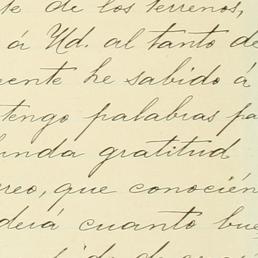 te de los terrenos,
á Ud. al tanto de
mente he sabido á
tengo palabras pa
funda gratitud
creo, que conocién
derá cuanto bue